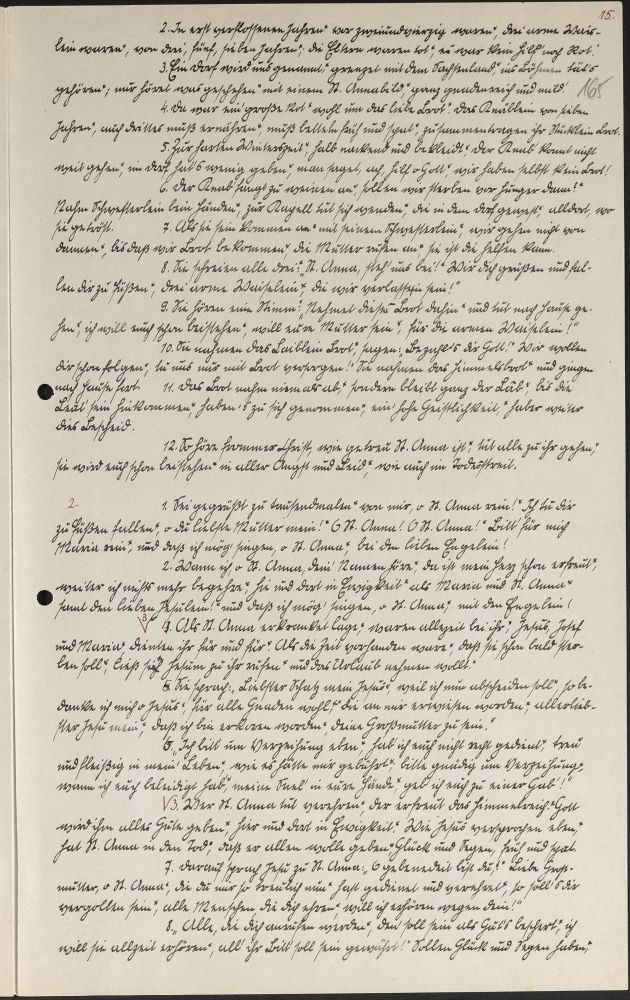 15.
165
2. In erst verflossenen Jahren" vor zweiundvierzig waren", drei arme Wais-
lein waren", von drei, fünf, sieben Jahren"; die Eltern waren tot", es war kein Hilf' noch Rot!
3. Ein Dorf wird uns genannt", grenzet mit dem Sachsenland", ins Böhmen tät's
gehören"; nur höret was geschehen" mit einem St. Annabild", ganz gnadenreich und mild.
4. Da war ein große Not" wohl um das liebe Brot". Das Knäblein von sieben
Jahren", auch drittes muß ernähren", muß betteln früh und spat", zusammentragen ihr Stücklein Brot.
5. Zur harten Winterszeit", halb nackend und bekleidt". Der Knab konnt nicht
weit gehen", im Dorf hat's wenig geben", man saget, ach, hilf o Gott", wir haben selbst kein Brot!
6. Der Knab fangt zu weinen an", sollen wir sterben vor Hunger dann!"
Nahm Schwesterlein bein Händen", zur Kapell tut sich wenden", die in dem Dorf gewest", alldort, wo
sie getröst. 7. Als sie sein kommen an" mit seinem Schwesterlein", wir gehen nicht von
dannen", bis daß wir Brot bekommen", die Mutter rufen an" sie ist die helfen kann.
8. Sie schreien alle drei": "St. Anna, steh' uns bei!" Wir dich grüßen und fal-
len dir zu Füßen", drei arme Waiselein", die wir verlassen sein!"
9. Sie hören eine Stimm": "Nehmet dieses Brot dahin" und tut nach Hause ge-
hen", ich will euch schon beistehen", will eure Mutter sein", für die armen Waiselein!"
10. Sie nahmen das Laiblein Brot", sagen: "Bezahl's dir Gott!" Wir wollen
dir schon folgen", tu uns nur mit Brot versorgen!" Sie nahmen das Himmelsbrot" und gingen
nach Hause fort. 11. Das Brot nahm niemals ab," sondern bleibt ganz der Laib", bis die
Leut' sein hinkommen", haben's zu sich genommen", ein' hohe Geistlichkeit," haber weiter
dies Bescheid.
12. So höre frommer Christ, wie getreu St. Anna ist", tut alle zu ihr gehen,"
sie wird euch schon beistehen" in aller Angst und Leid," wie auch im Todesstreit.
2. 1. Sei gegrüßt zu tausendmalen" von mir, o St. Anna rein!" Ich tu dir
zu Füßen fallen," o du liebste Mutter mein!" O St. Anna! O St. Anna!" Bitt für mich
Maria rein", und daß ich mög' singen, o St. Anna", bei den lieben Engelein!
2. Wann ich o St. Anna, dein' Namen höre", da ist mein Herz schon erfreut",
weiter ich nichts mehr begehre", hie und dort in Ewigkeit" als Maria und St. Anna"
samt den lieben Jesulein!" und daß ich mög' singen, o St. Anna," mit den Engelein!
3 4. Als St. Anna erkranket lage," waren allezeit bei ihr", Jesus, Josef
und Maria", dienten ihr für und für". Als die Zeit vorhanden ware", daß sie schon bald ster-
ben soll", ließ sie Jesum zu ihr rufen" und das Urlaub nehmen wollt."
5. Sie sprach: "Liebster Schatz mein Jesus", weil ich nun abscheiden soll", so be-
danke ich mich o Jesus", für alle Gnaden wohl," die an mir erwiesen worden," allerlieb-
ster Jesu mein", daß ich bin erkoren worden", deine Großmutter zu sein."
6. "Ich bitt um Verzeihung eben," hab' ich euch nicht recht gedient", treu
und fleißig in mein' Leben", wie es hätte mir gebührt", bitte gnädig um Verzeihung",
wann ich euch beleidigt hab", meine Seel' in eure Hände" geb' ich euch zu einer Gab'!"
3. Wer St. Anna tut verehren", der erfreut das Himmelreich", Gott
wird ihm alles Gute geben" hier und dort in Ewigkeit". Wie Jesus versprochen eben,"
hat St. Anna in den Tod," daß er allen wolle geben" Glück und Segen, früh und spat.
7. Darauf sprach Jesu zu St. Anna, "O gebenedeit bist du!" Liebe Groß-
mutter, o St. Anna", die du mir so treulich nun" hast gedienet und verehret", so soll's dir
vergolten sein", alle Menschen die dich ehren" will ich erhören wegen dein!"
8. "Alle, die dich anrufen werden", den' soll sein als Gut's beschert," ich
will sie allzeit erhören", all' ihr Bitt' soll sein gewährt!" Sollen Glück und Segen haben,"